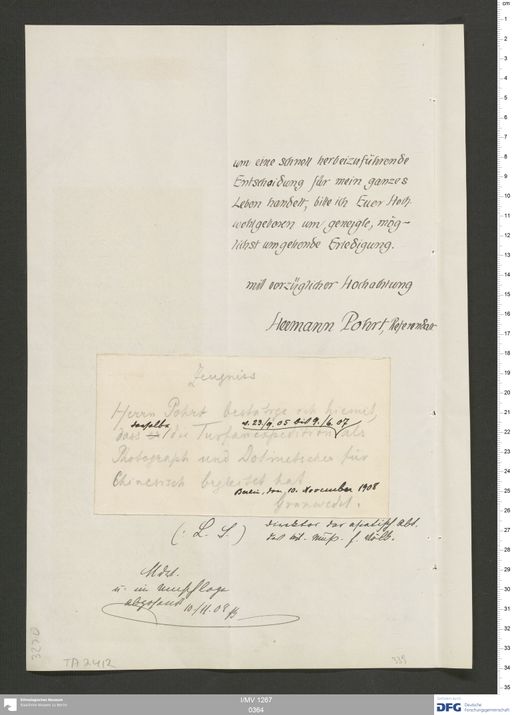 um eine schnell herbeizuführende
Entscheidung für mein ganzes
Leben handelt, bitte ich Euer Hoch
wohlgeboren um geneigte, mög-
lichst umgehende Erledigung.
mit vorzüglicher Hochachtung
Hermann Pohrt, Referendar
Zeugniss
Herrn Pohrt bestätige ich hiemit,
derselbe v. 23/9. 05 bis 9./6. 07
dass die Turfanexpedition als
Photograph und Dolmetscher für
Chinesisch begleitet hat
Berlin, den 10. November 1908
Grünwedel.
(: L. S.) Direktor der asiatisch. Abt.
des Kl. Mus. f. Völk.
Mdt.
u. in Umschlage
abgesandt 10/11. 08
3220
TA 2412
339
Ethnologisches Museum
Staatliche Museen zu Berlin
I/MV 1267
0364
DFG Deutsche
Forschungsgemeinschaft
cm
1
2
3
4
5
6
7
8
9
10
11
12
13
14
15
16
17
18
19
20
21
22
23
24
25
26
27
28
29
30
31
32
33
34
35